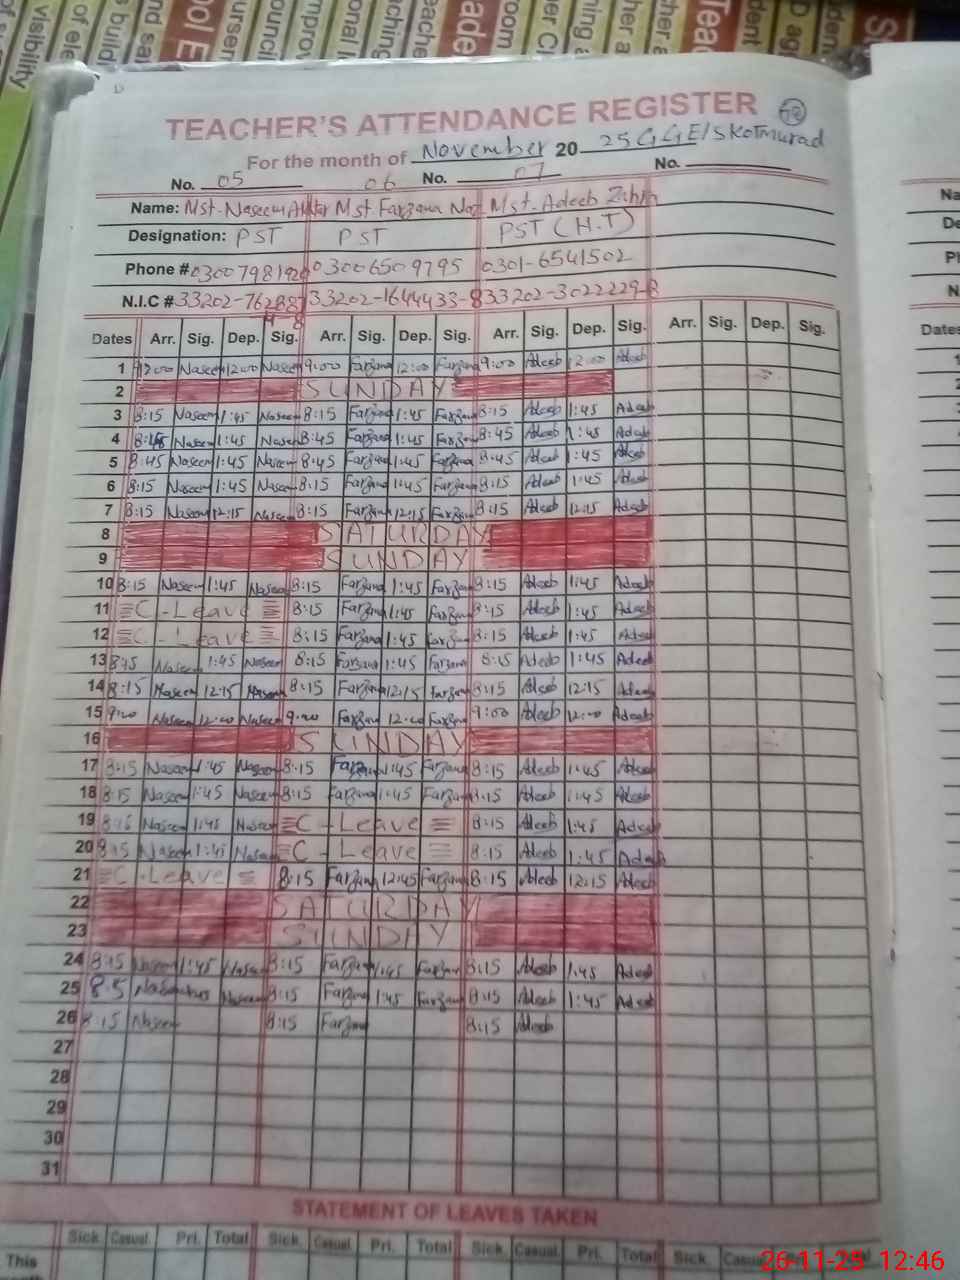 TEACHER'S ATTENDANCE REGISTER 78
For the month of November 20 25 GGE/S Kotmurad
No. 05 06 No. 07 No.
Name: Mst. Naseem Akhtar Mst. Farzana Naz Mst. Adeeb Zahra
Designation: PST PST PST (H.T)
Phone # 03006509795 0301-6541502
N.I.C # 33202-1644433-8 33202-3022229-8
Dates Arr. Sig. Dep. Sig. Arr. Sig. Dep. Sig. Arr. Sig. Dep. Sig. Arr. Sig. Dep. Sig.
1 9:00 Naseem 12:00 Naseem 9:00 Farzana 12:00 Farzana 9:00 Adeeb 12:00 Adeeb
2 SUNDAY
3 8:15 Naseem 1:45 Naseem 8:15 Farzana 1:45 Farzana 8:15 Adeeb 1:45 Adeeb
4 Naseem 1:45 Naseem 8:45 Farzana 1:45 Farzana 8:45 Adeeb 1:45 Adeeb
5 8:45 Naseem 1:45 Naseem 8:45 Farzana 1:45 Farzana 8:45 Adeeb 1:45 Adeeb
6 8:15 Naseem 1:45 Naseem 8:15 Farzana 1:45 Farzana 8:15 Adeeb 1:45 Adeeb
7 8:15 Naseem 12:15 Naseem 8:15 Farzana 12:15 Farzana 8:15 Adeeb 12:15 Adeeb
8 SATURDAY
9 SUNDAY
10 8:15 Naseem 1:45 Naseem 8:15 Farzana 1:45 Farzana 8:15 Adeeb 1:45 Adeeb
11 C-Leave 8:15 Farzana 1:45 Farzana 8:15 Adeeb 1:45 Adeeb
12 C-Leave 8:15 Farzana 1:45 Farzana 8:15 Adeeb 1:45 Adeeb
13 8:15 Naseem 1:45 Naseem 8:15 Farzana 1:45 Farzana 8:15 Adeeb 1:45 Adeeb
14 8:15 Naseem 12:15 Naseem 8:15 Farzana 12:15 Farzana 8:15 Adeeb 12:15 Adeeb
15 9:00 Naseem 12:00 Naseem 9:00 Farzana 12:00 Farzana 9:00 Adeeb 12:00 Adeeb
16 SUNDAY
17 8:15 Naseem 1:45 Naseem 8:15 Farzana 1:45 Farzana 8:15 Adeeb 1:45 Adeeb
18 8:15 Naseem 1:45 Naseem 8:15 Farzana 1:45 Farzana 8:15 Adeeb 1:45 Adeeb
19 8:15 Naseem 1:45 Naseem C-Leave 8:15 Adeeb 1:45 Adeeb
20 8:15 Naseem 1:45 Naseem C-Leave 8:15 Adeeb 1:45 Adeeb
21 C-Leave 8:15 Farzana 12:45 Farzana 8:15 Adeeb 12:15 Adeeb
22 SATURDAY
23 SUNDAY
24 8:15 Naseem 1:45 Naseem 8:15 Farzana 1:45 Farzana 8:15 Adeeb 1:45 Adeeb
25 Naseem 8:15 Farzana 1:45 Farzana 8:15 Adeeb 1:45 Adeeb
26 8:15 Naseem 8:15 Farzana 8:15 Adeeb
27
28
29
30
31
STATEMENT OF LEAVES TAKEN
Sick Casual Pri. Total Sick Casual Pri. Total Sick Casual Pri. Total Sick Casual
This
26-11-25 12:46